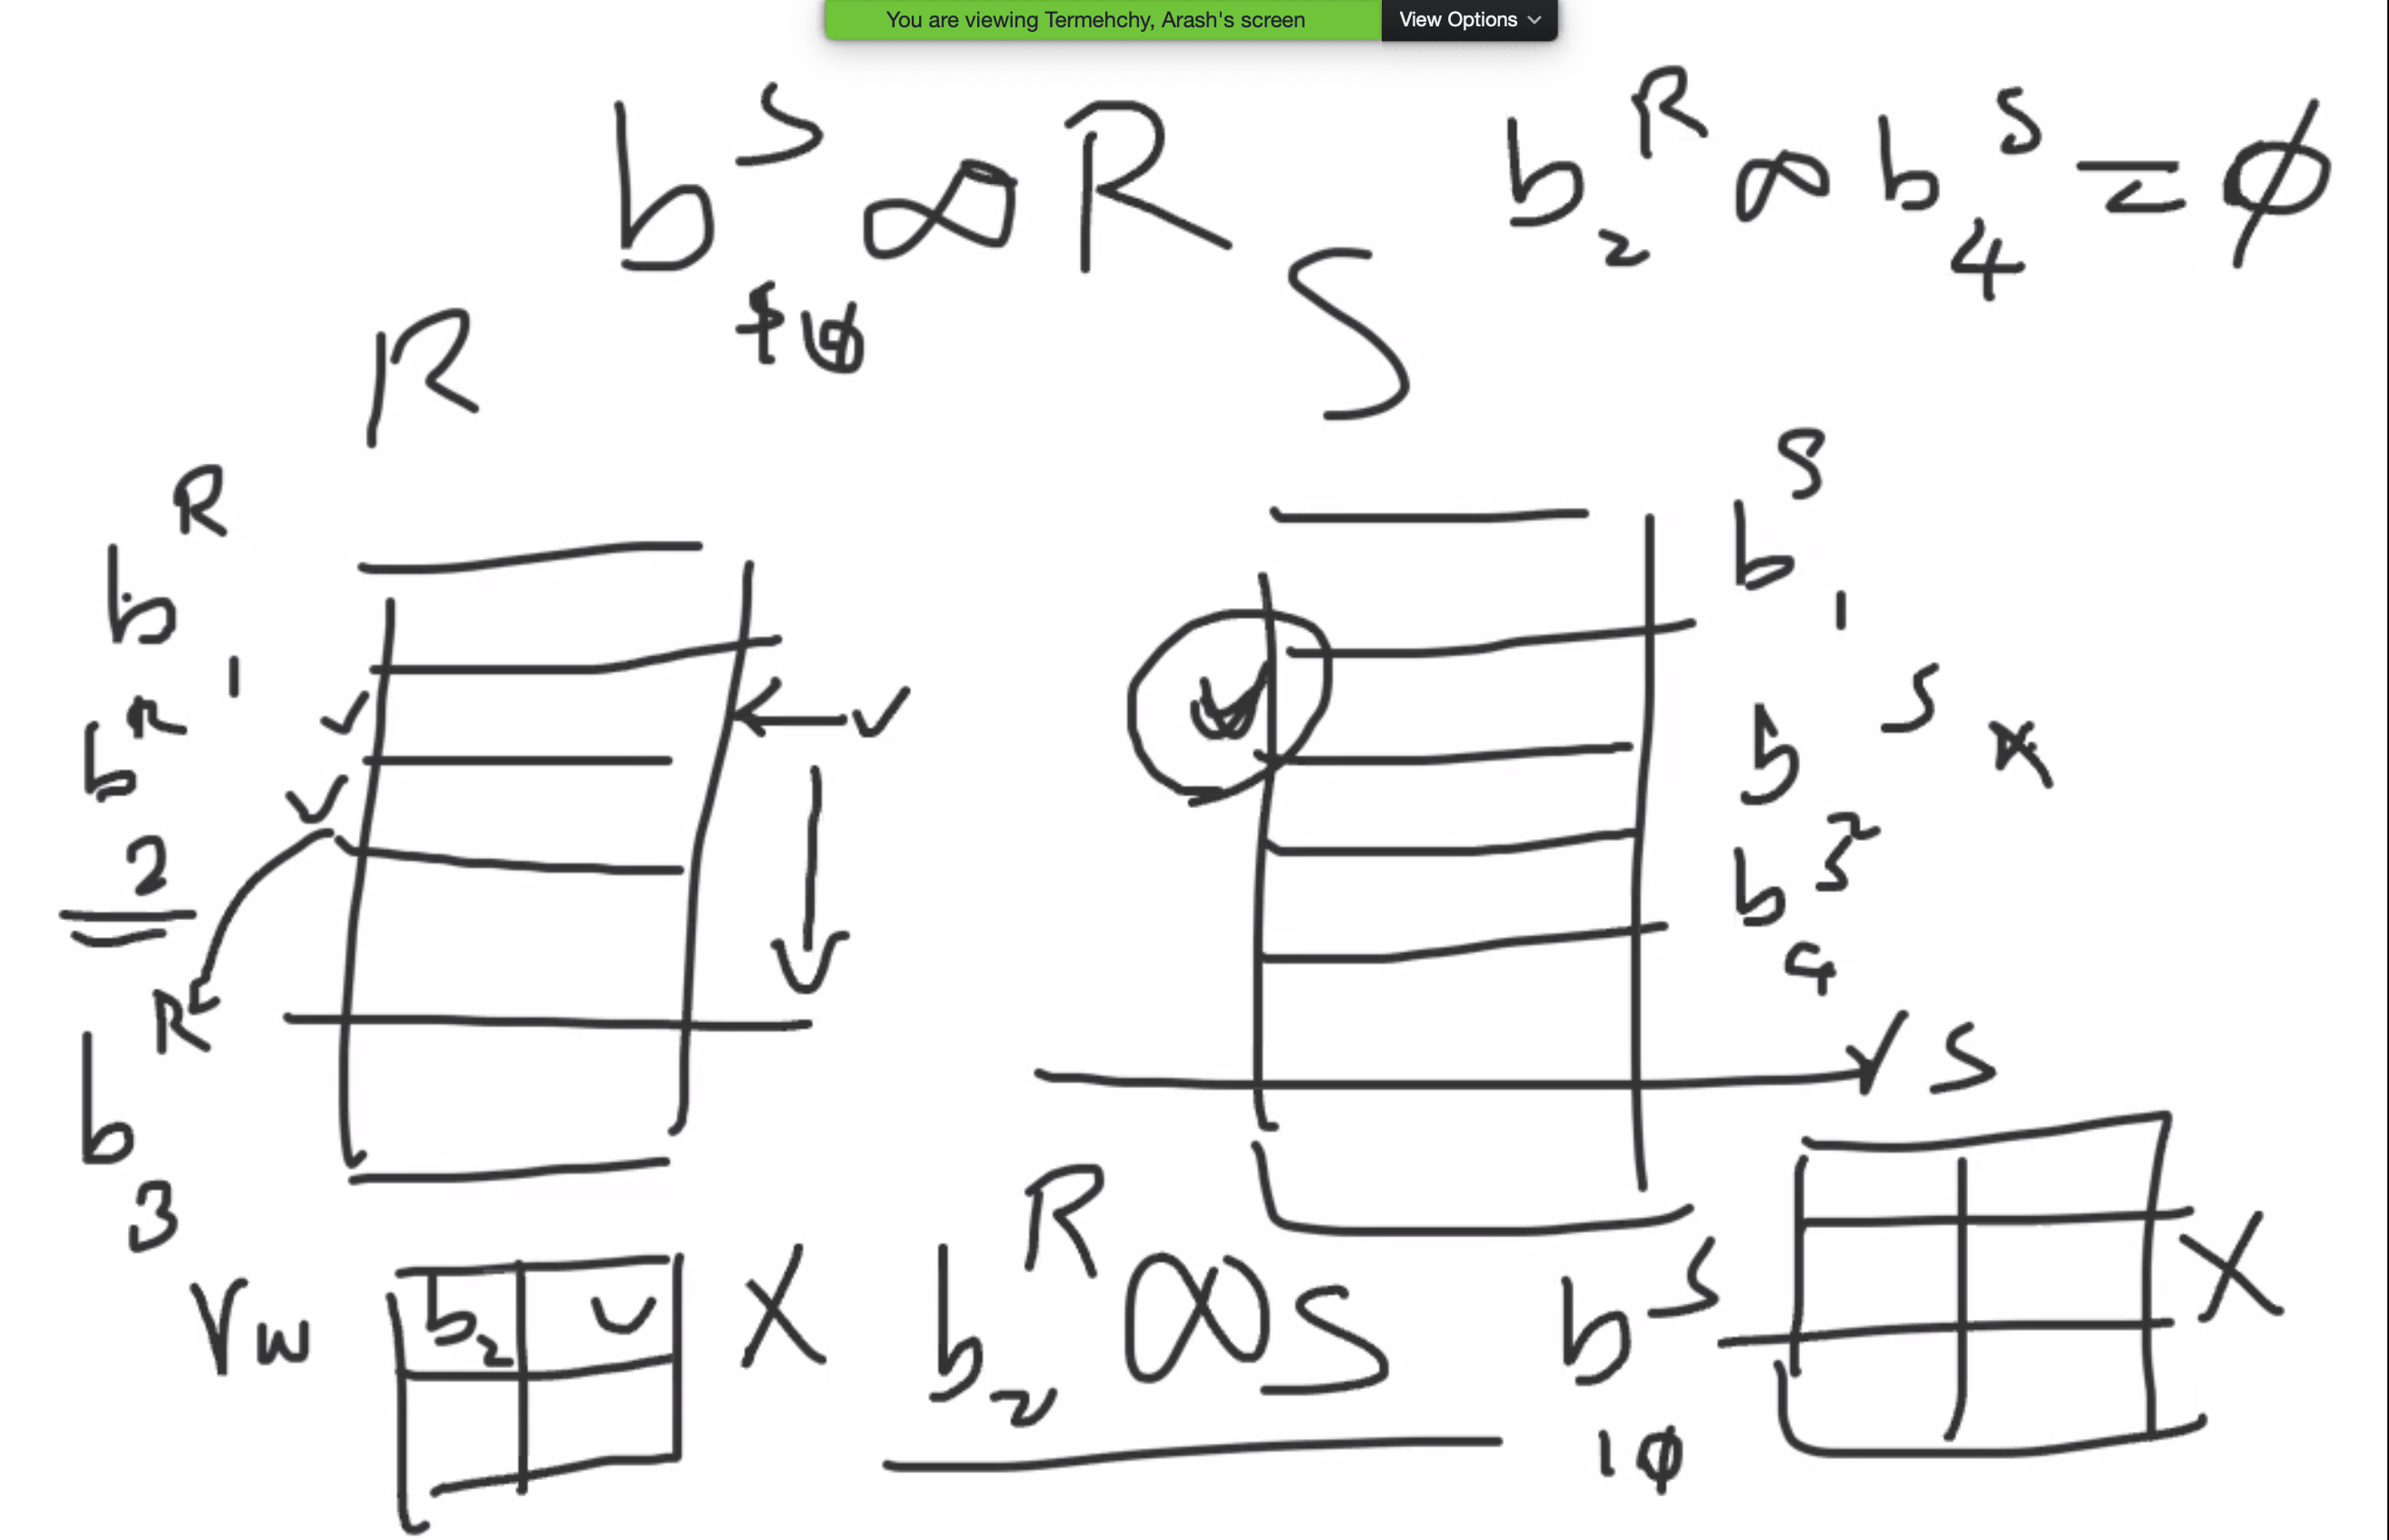 You are viewing Termehchy, Arash's screen View Options
b^S ∞ R
b_2^R ∞ b_4^S = φ
R
S
b_1^R
b_1^S
b_2^R
b_2^S
b_4^S
b_3^R
b_2
b_2^R ∞ S
b_10^S